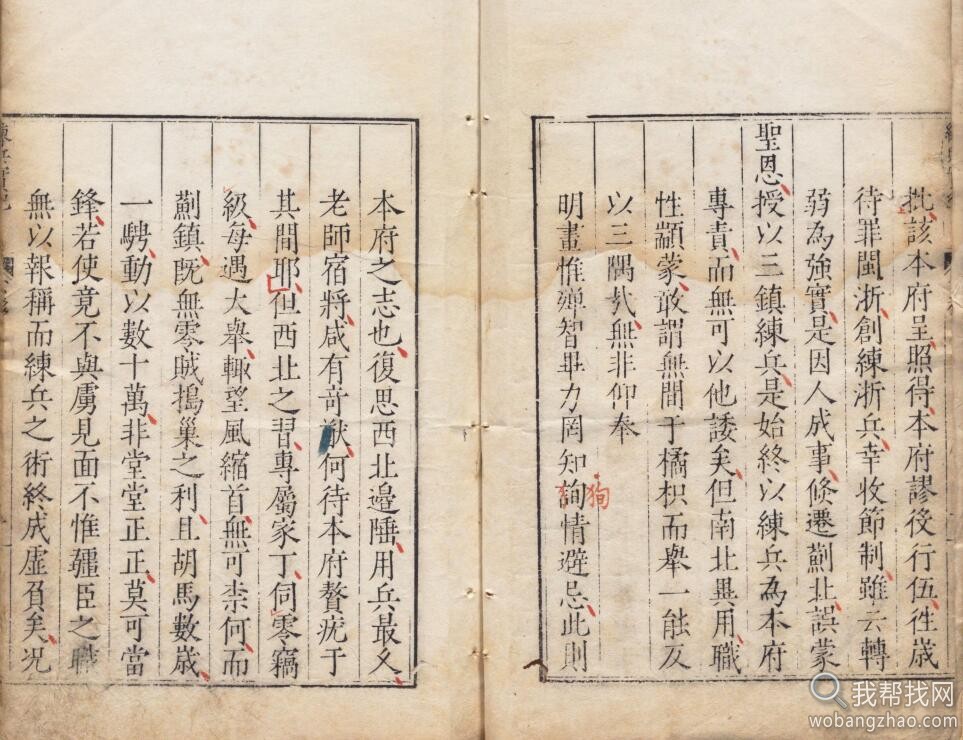 批該本府呈照得本府謬後行伍徃歲
待罪閩浙創練浙兵幸收節制雖云轉
弱為強實是因人成事倏遷薊北誤蒙
聖恩授以三鎮練兵是始終以練兵為本府
專責而無可以他諉矣但南北異用職
性顓蒙敢謂無間于橘枳而舉一能反
以三隅哉無非仰奉
明畫惟殫智畢力罔知詢情避忌此則
狥
本府之志也復思西北邉陲用兵最乆
老師宿將咸有竒猷何待本府贅疣于
其間耶但西北之習專屬家丁伺零竊
級每遇大舉輙望風縮首無可柰何而
薊鎮既無零賊搗巢之利且胡馬數歲
一騁動以數十萬非堂堂正正莫可當
鋒若使竟不與虜見面不惟疆臣之職
無以報稱而練兵之術終成虛負矣况
練兵實紀
我帮找网
wobangzhao.com